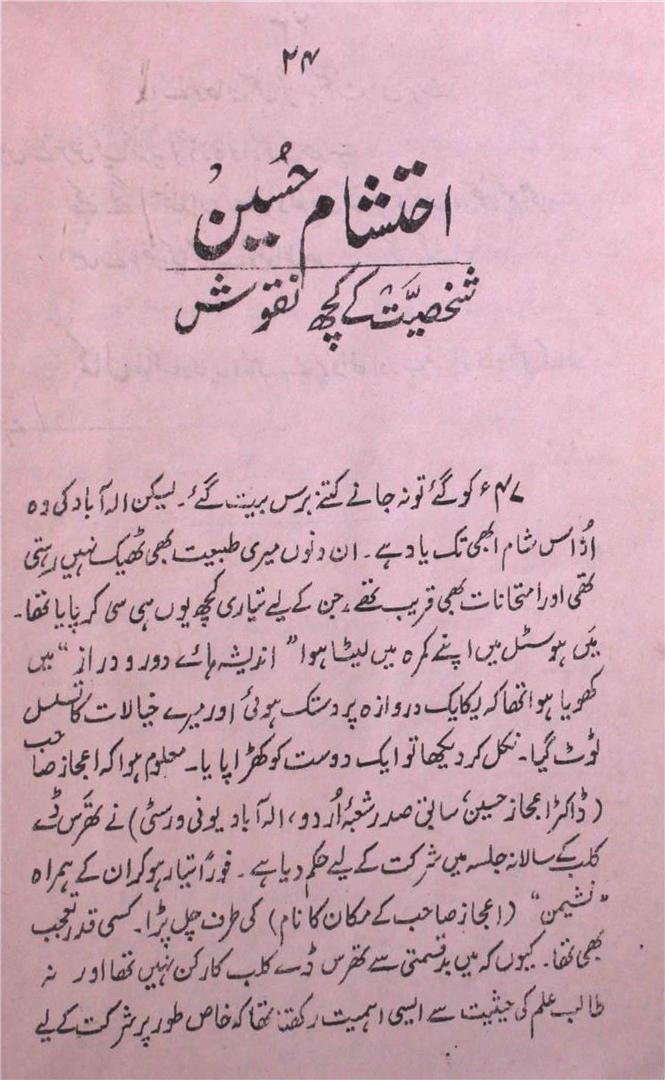 ۲۴
احتشام حُسین
شخصیّت کے کچھ نقوش
۴۷ء کو گئے تو نہ جانے کتنے برس بیت گئے۔ لیکن الہ آباد کی وہ
اُداس شام ابھی تک یاد ہے۔ ان دنوں میری طبیعت بھی ٹھیک نہیں رہتی
تھی اور امتحانات بھی قریب تھے، جن کے لیے تیاری کچھ یوں ہی سی کر پایا تھا۔
میں ہوسٹل میں اپنے کمرہ میں لیٹا ہوا "اندیشہ ہائے دور و دراز" میں
کھویا ہوا تھا کہ یکایک دروازہ پر دستک ہوئی اور میرے خیالات کا تسلسل
ٹوٹ گیا۔ نکل کر دیکھا تو ایک دوست کو کھڑا پایا۔ معلوم ہوا کہ اعجاز صاحب
(ڈاکٹر اعجاز حسین، سابق صدر شعبۂ اُردو، الہ آباد یونی ورسٹی) نے تھرس ڈے
کلب کے سالانہ جلسہ میں شرکت کے لیے حکم دیا ہے۔ فوراً تیار ہو کر ان کے ہمراہ
"نشیمن" (اعجاز صاحب کے مکان کا نام) کی طرف چل پڑا۔ کسی قدر تعجب
بھی تھا۔ کیوں کہ میں بدقسمتی سے تھرس ڈے کلب کا رکن نہیں تھا اور نہ
طالب علم کی حیثیت سے ایسی اہمیت رکھتا تھا کہ خاص طور پر شرکت کے لیے